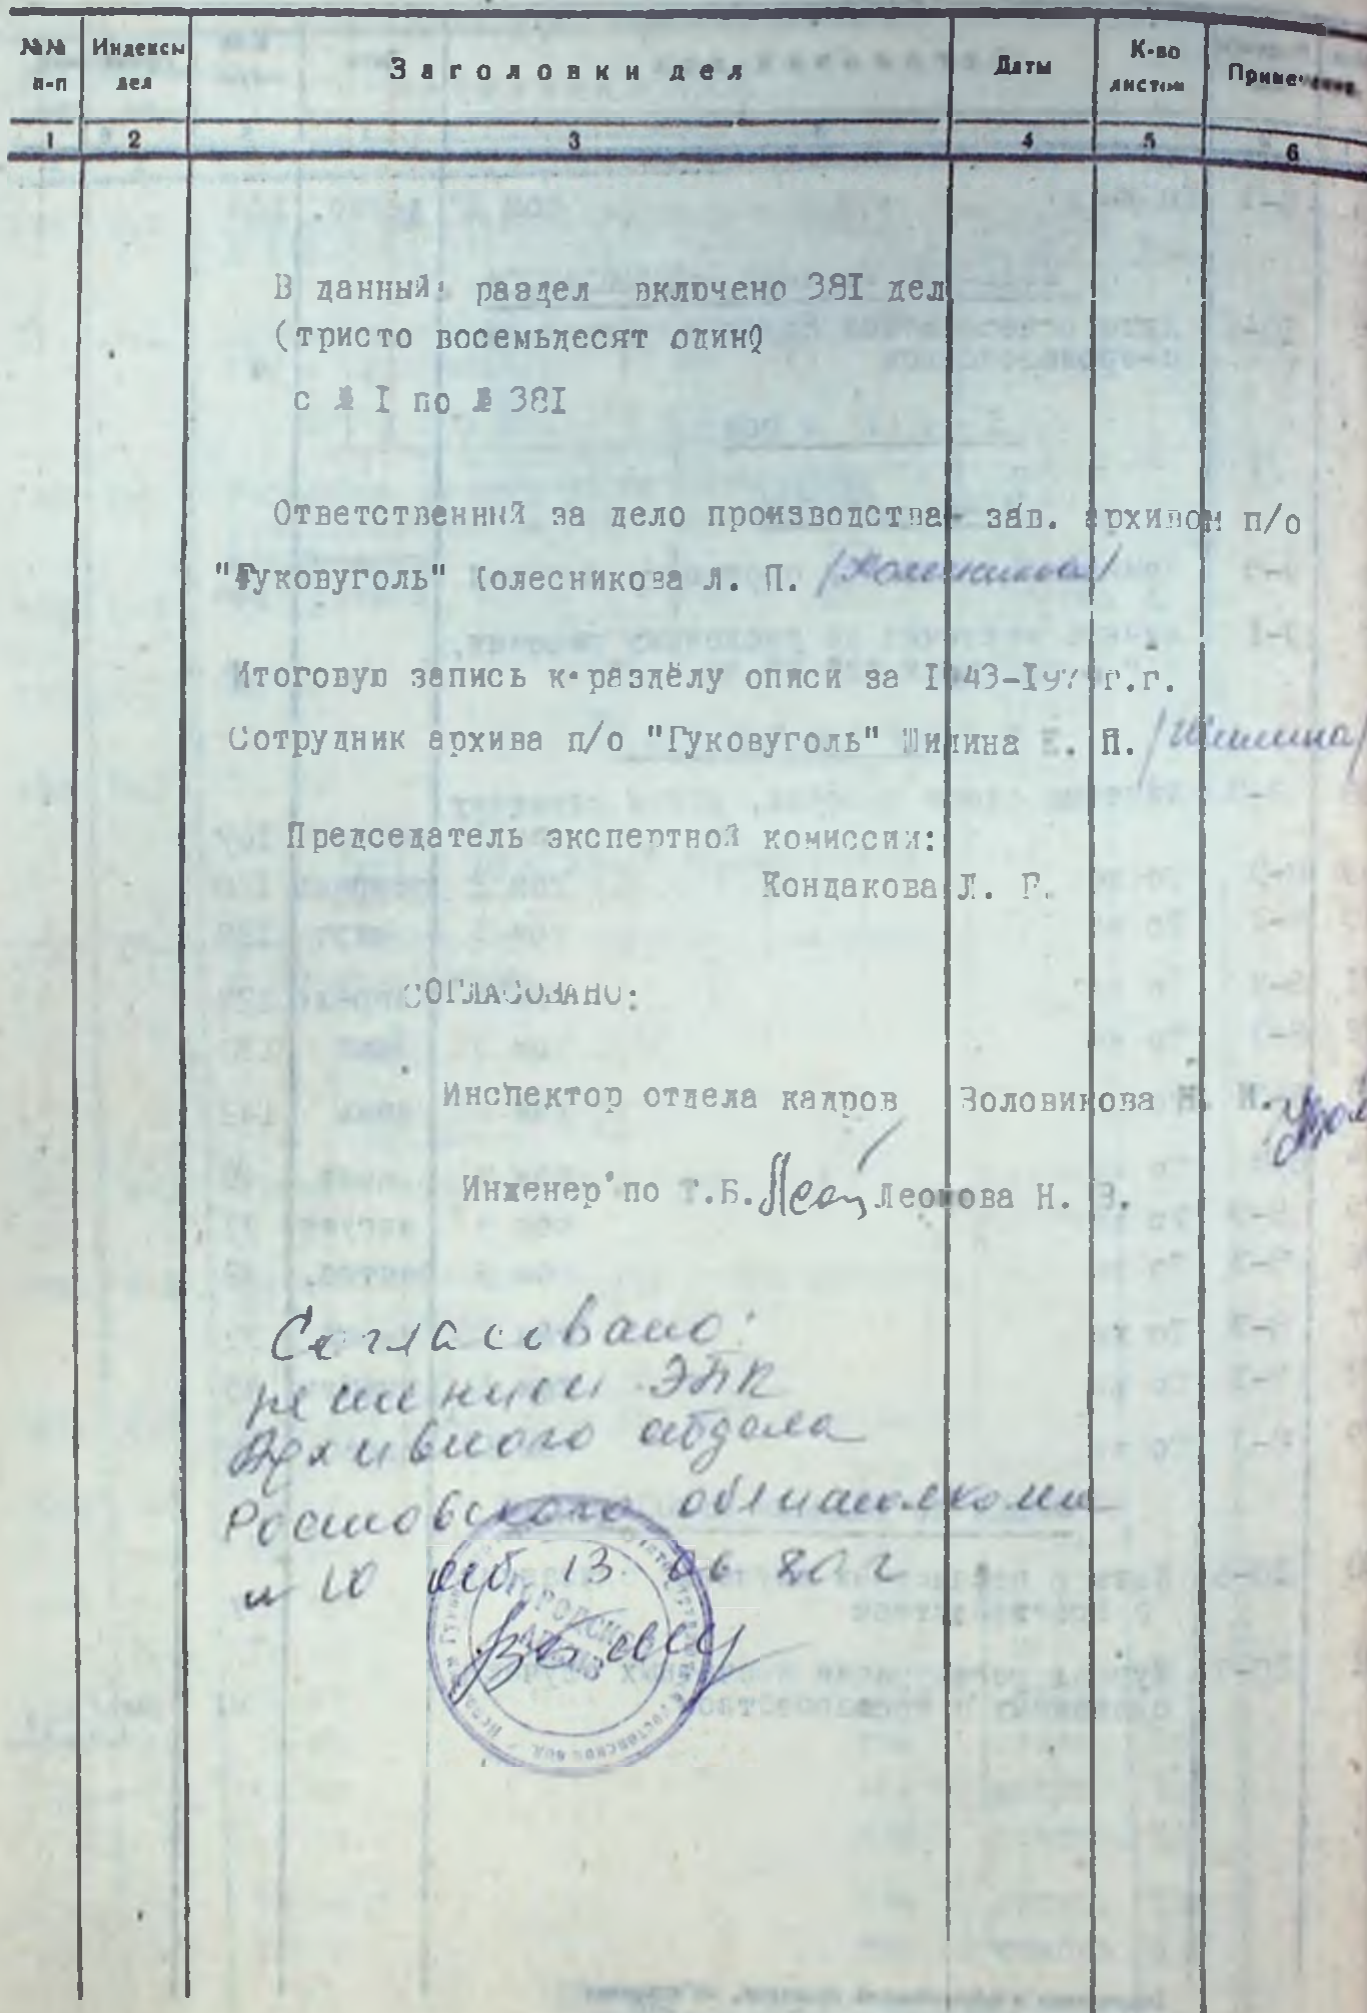 №№ Индексы Заголовки дел Даты К-во Примечания
п-п дел листов
1 2 3 4 5 6
В данный раздел включено 381 дел
(тристо восемьдесят один)
с № I по № 381
Ответственный за дело производства- зав. архивом п/о
"Гуковуголь" Колесникова Л. П. /Колесникова/
Итоговую запись к разделу описи за 1943-197 г.г.
Сотрудник архива п/о "Гуковуголь" Шилина Е. П. /Шилина/
Председатель экспертной комиссии:
Кондакова Л. Г.
СОГЛАСОВАНО:
Инспектор отдела кадров Золовикова Н. И.
Инженер по Т.Б. Леонова Н. В.
Согласовано:
решением ЭПК
Архивного отдела
Ростовского облисполкома
№ 10 от 13 06 80 г
ГОРОДСКОЙ
АРХИВ